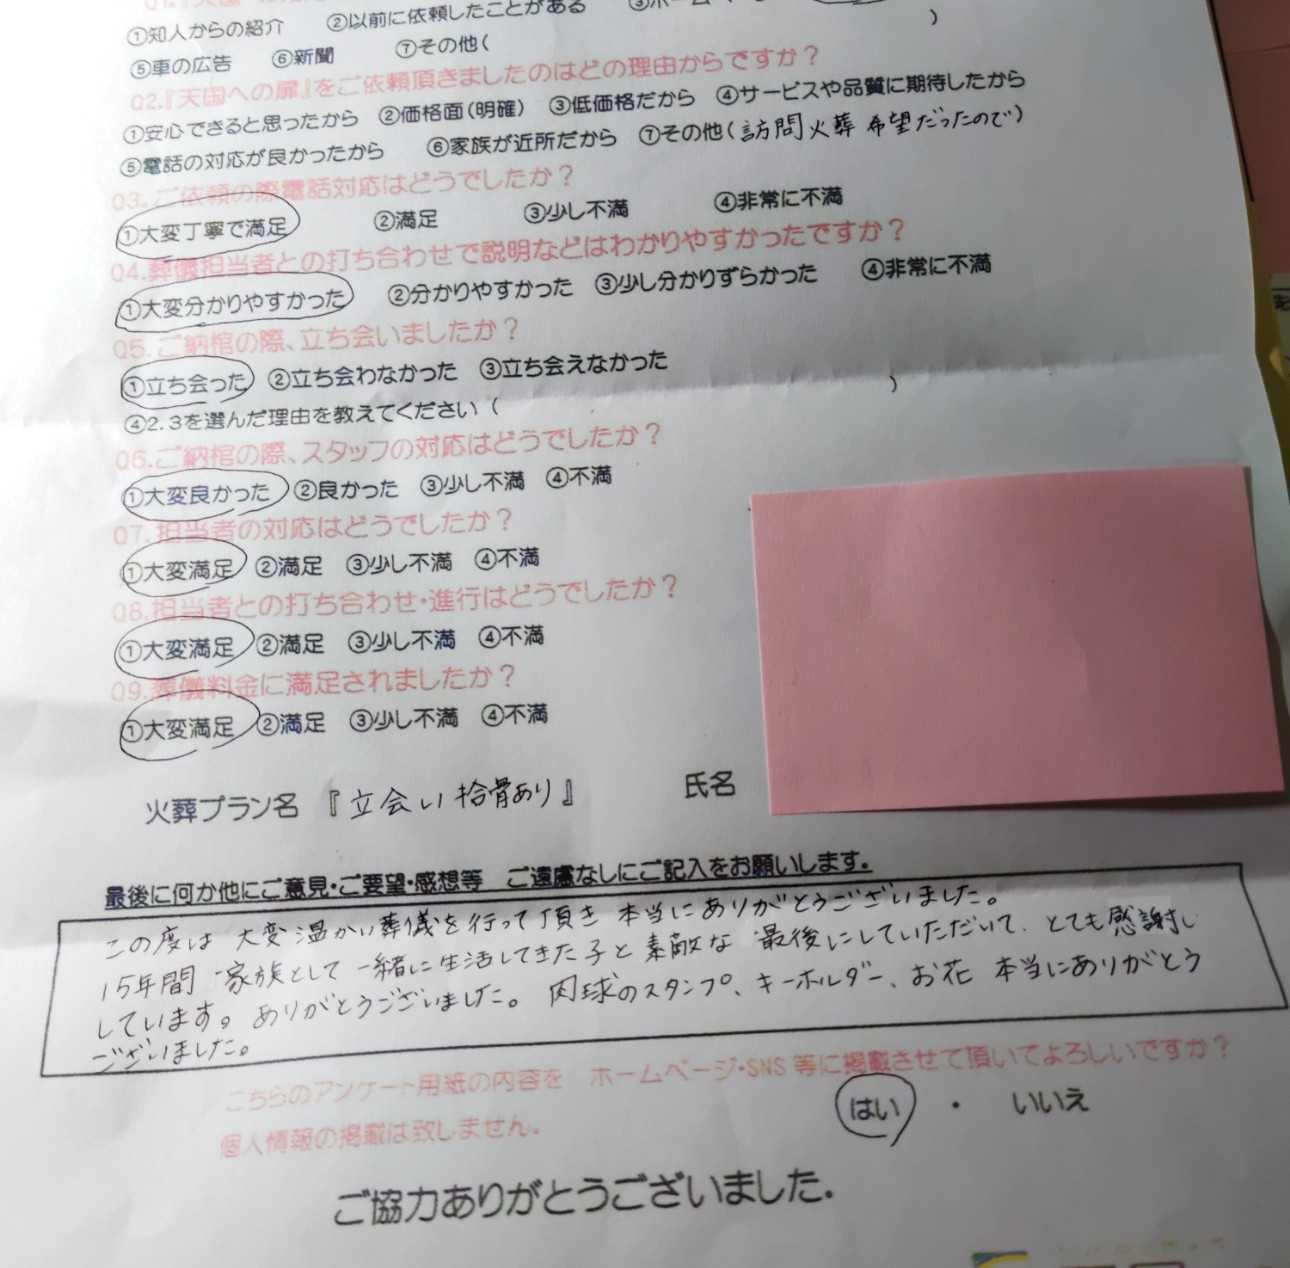 ①知人からの紹介 ②以前に依頼したことがある
⑤車の広告 ⑥新聞 ⑦その他( )
Q2.『天国への扉』をご依頼頂きましたのはどの理由からですか？
①安心できると思ったから ②価格面(明確) ③低価格だから ④サービスや品質に期待したから
⑤電話の対応が良かったから ⑥家族が近所だから ⑦その他(訪問火葬希望だったので)
Q3.ご依頼の際電話対応はどうでしたか？
①大変丁寧で満足 ②満足 ③少し不満 ④非常に不満
Q4.葬儀担当者との打ち合わせで説明などはわかりやすかったですか？
①大変分かりやすかった ②分かりやすかった ③少し分かりずらかった ④非常に不満
Q5.ご納棺の際、立ち会いましたか？
①立ち会った ②立ち会わなかった ③立ち会えなかった
④2.3を選んだ理由を教えてください( )
Q6.ご納棺の際、スタッフの対応はどうでしたか？
①大変良かった ②良かった ③少し不満 ④不満
Q7.担当者の対応はどうでしたか？
①大変満足 ②満足 ③少し不満 ④不満
Q8.担当者との打ち合わせ・進行はどうでしたか？
①大変満足 ②満足 ③少し不満 ④不満
Q9.葬儀料金に満足されましたか？
①大変満足 ②満足 ③少し不満 ④不満
火葬プラン名 『立会い拾骨あり』 氏名
最後に何か他にご意見・ご要望・感想等 ご遠慮なしにご記入をお願いします.
この度は 大変温かい葬儀を行って頂き 本当にありがとうございました。
15年間 家族として一緒に生活してきた子と素敵な 最後にしていただいて、とても感謝し
しています。ありがとうございました。肉球のスタンプ、キーホルダー、お花 本当にありがとう
ございました。
こちらのアンケート用紙の内容を ホームページ・SNS等に掲載させて頂いてよろしいですか？
個人情報の掲載は致しません。 はい ・ いいえ
ご協力ありがとうございました.